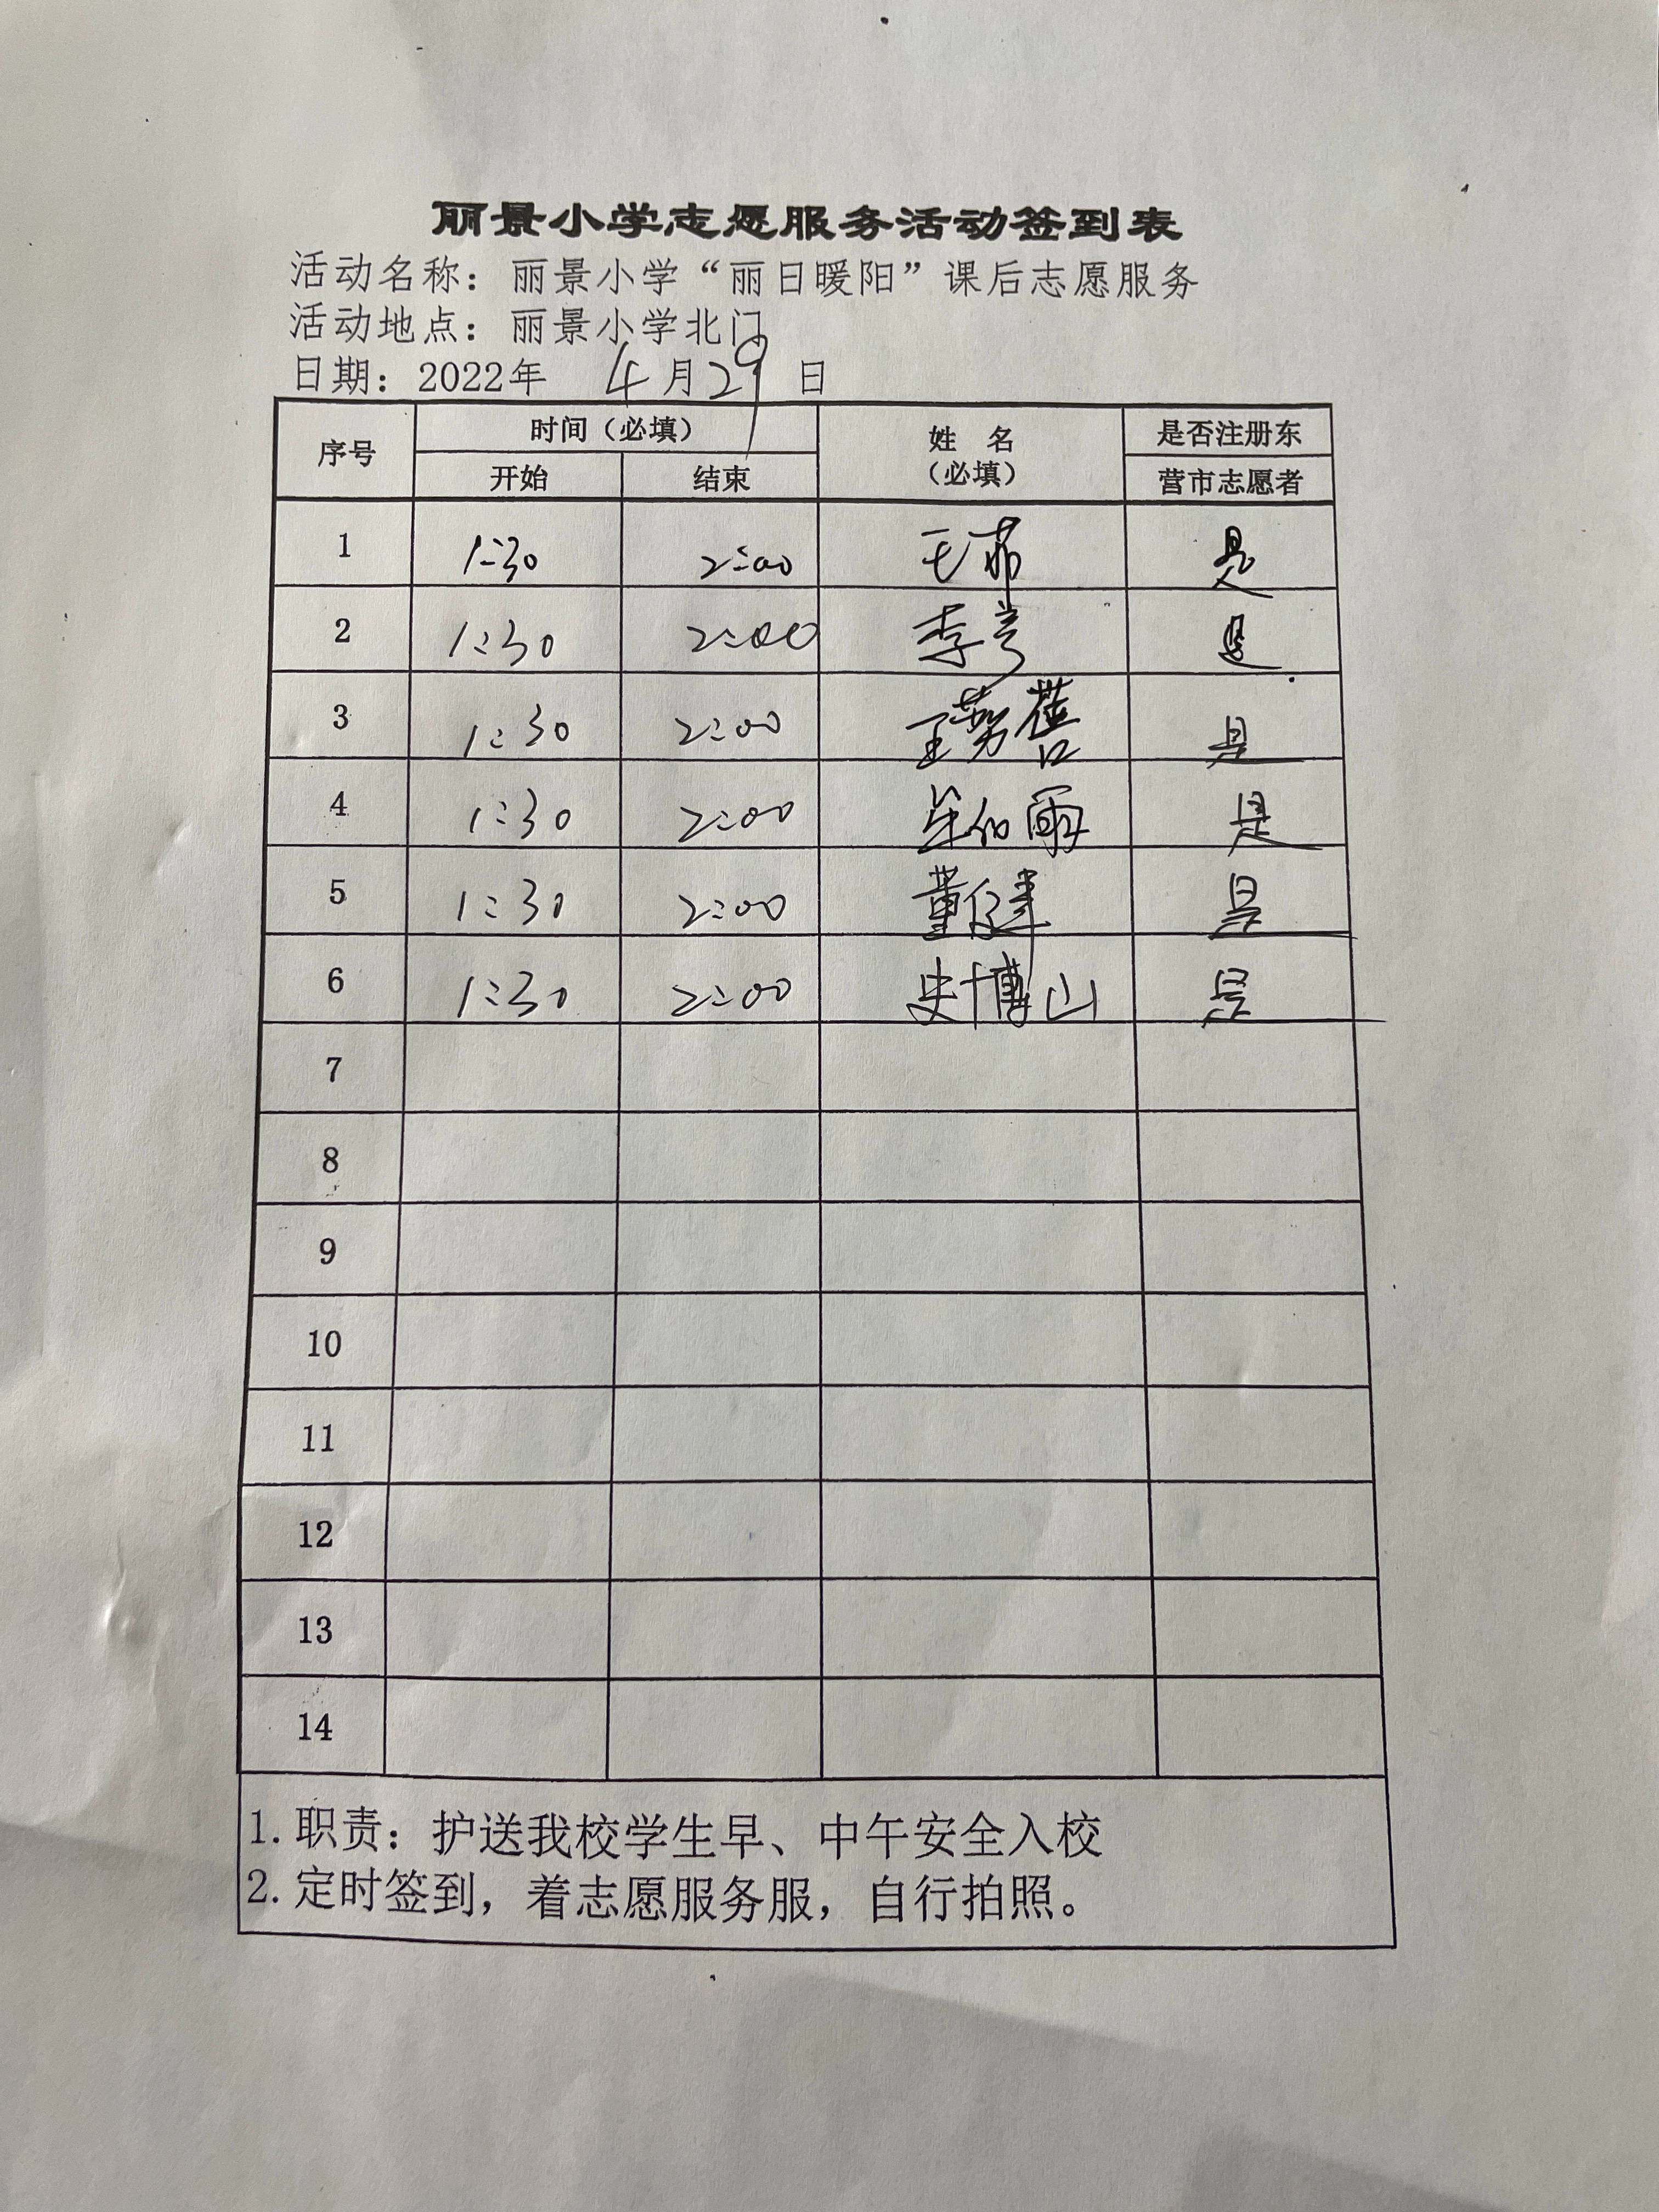 丽景小学志愿服务活动签到表
活动名称：丽景小学“丽日暖阳”课后志愿服务
活动地点：丽景小学北门
日期：2022年 4月29日
序号 时间（必填） 姓 名（必填） 是否注册东营市志愿者
开始 结束
1 1:30 2:00 是
2 1:30 2:00 是
3 1:30 2:00 是
4 1:30 2:00 是
5 1:30 2:00 董健 是
6 1:30 2:00 史博山 是
7
8
9
10
11
12
13
14
1. 职责：护送我校学生早、中午安全入校
2. 定时签到，着志愿服务服，自行拍照。